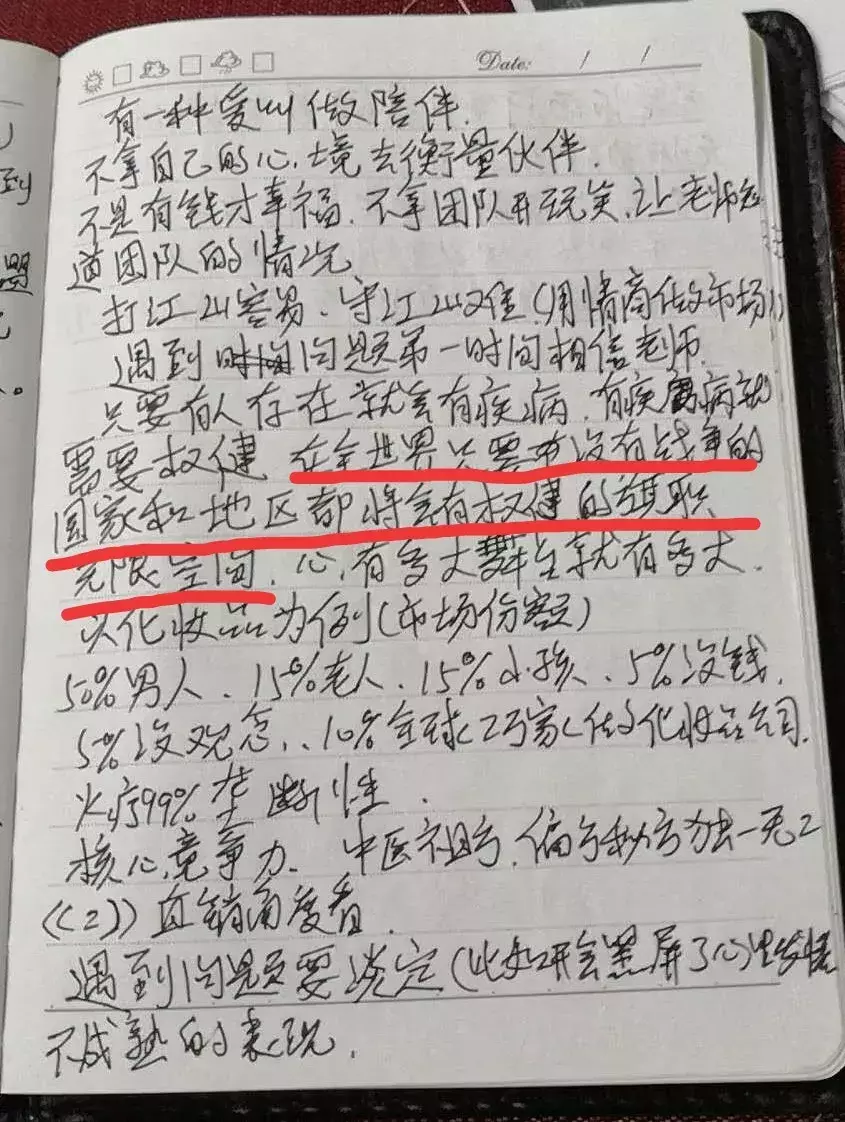 Date: / /
有一种爱叫做陪伴.
不拿自己的心境去衡量伙伴.
不是有钱才幸福.不拿团队开玩笑.让老师知
道团队的情况
打江山容易.守江山难(用情商做市场)
遇到时间问题第一时间相信老师.
只要有人存在就会有疾病.有疾病就
需要权健 在全世界只要没有战争的
国家和地区都将会有权健的旗帜
无限空间.心有多大舞台就有多大.
以化妆品为例(市场份额)
50%男人、15%老人、15%小孩、5%没钱.
5%没观念..10%全球(2万家(做化妆品公司.
火疗99%垄断性.
核心竞争力.中医祖方.偏方秘方独一无二
((2))直销角度看.
遇到问题要淡定(比如开会黑屏了心里发慌
不成熟的表现.
到
题